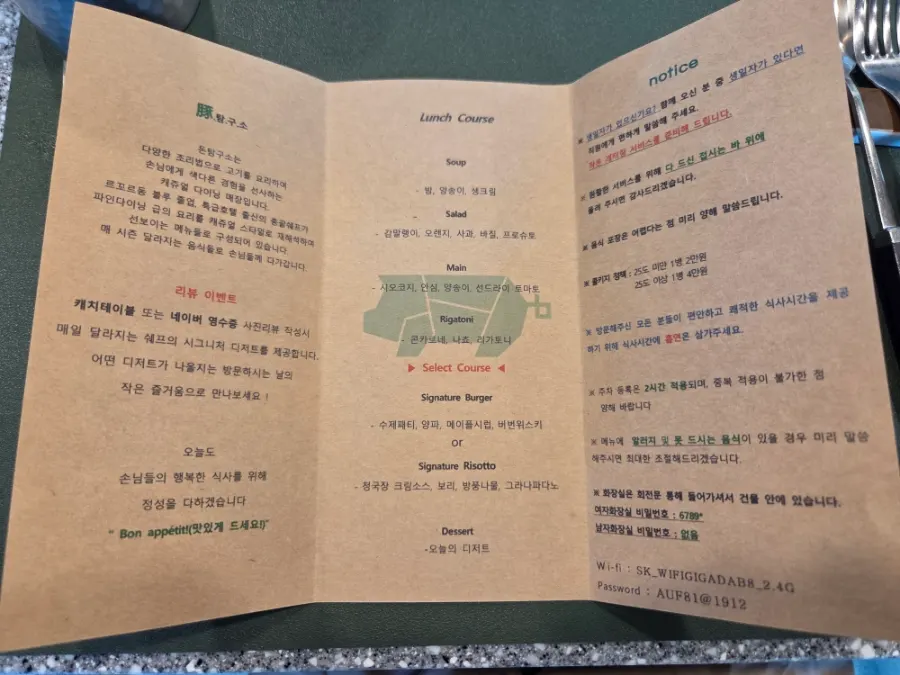 豚탐구소
돈탐구소는
다양한 조리법으로 고기를 요리하여
손님에게 색다른 경험을 선사하는
캐쥬얼 다이닝 매장입니다.
르꼬르동 블루 졸업, 특급호텔 출신의 총괄쉐프가
파인다이닝 급의 요리를 캐쥬얼 스타일로 재해석하여
선보이는 메뉴들로 구성되어 있습니다.
매 시즌 달라지는 음식들로 손님들께 다가갑니다.
리뷰 이벤트
캐치테이블 또는 네이버 영수증 사진리뷰 작성시
매일 달라지는 쉐프의 시그니처 디저트를 제공합니다.
어떤 디저트가 나올지는 방문하시는 날의
작은 즐거움으로 만나보세요 !
오늘도
손님들의 행복한 식사를 위해
정성을 다하겠습니다
" Bon appétit!(맛있게 드세요!)"
Lunch Course
Soup
- 밤, 양송이, 생크림
Salad
- 감말랭이, 오렌지, 사과, 바질, 프로슈토
Main
- 시모코지, 안심, 양송이, 선드라이 토마토
Rigatoni
- 꼰카르네, 나쵸, 리가토니
▶ Select Course ◀
Signature Burger
- 수제패티, 양파, 메이플시럽, 버번위스키
or
Signature Risotto
- 청국장 크림소스, 보리, 방풍나물, 그라나파다노
Dessert
-오늘의 디저트
notice
※ 생일자가 있으신가요? 함께 오신 분 중 생일자가 있다면
직원에게 편하게 말씀해 주세요.
작은 레터링 서비스를 준비해 드립니다.
※ 원활한 서비스를 위해 다 드신 접시는 바 위에
올려 주시면 감사드리겠습니다.
※ 음식 포장은 어렵다는 점 미리 양해 말씀드립니다.
※ 콜키지 정책 : 25도 미만 1병 2만원
25도 이상 1병 4만원
※ 방문해주신 모든 분들이 편안하고 쾌적한 식사시간을 제공
하기 위해 식사시간에 흡연은 삼가주세요.
※ 주차 등록은 2시간 적용되며, 중복 적용이 불가한 점
양해 바랍니다
※ 메뉴에 알러지 및 못 드시는 음식이 있을 경우 미리 말씀
해주시면 최대한 조절해드리겠습니다.
※ 화장실은 회전문 통해 들어가셔서 건물 안에 있습니다.
여자화장실 비밀번호 : 6789*
남자화장실 비밀번호 : 없음
Wi-fi : SK_WIFIGIGADAB8_2.4G
Password : AUF81@1912